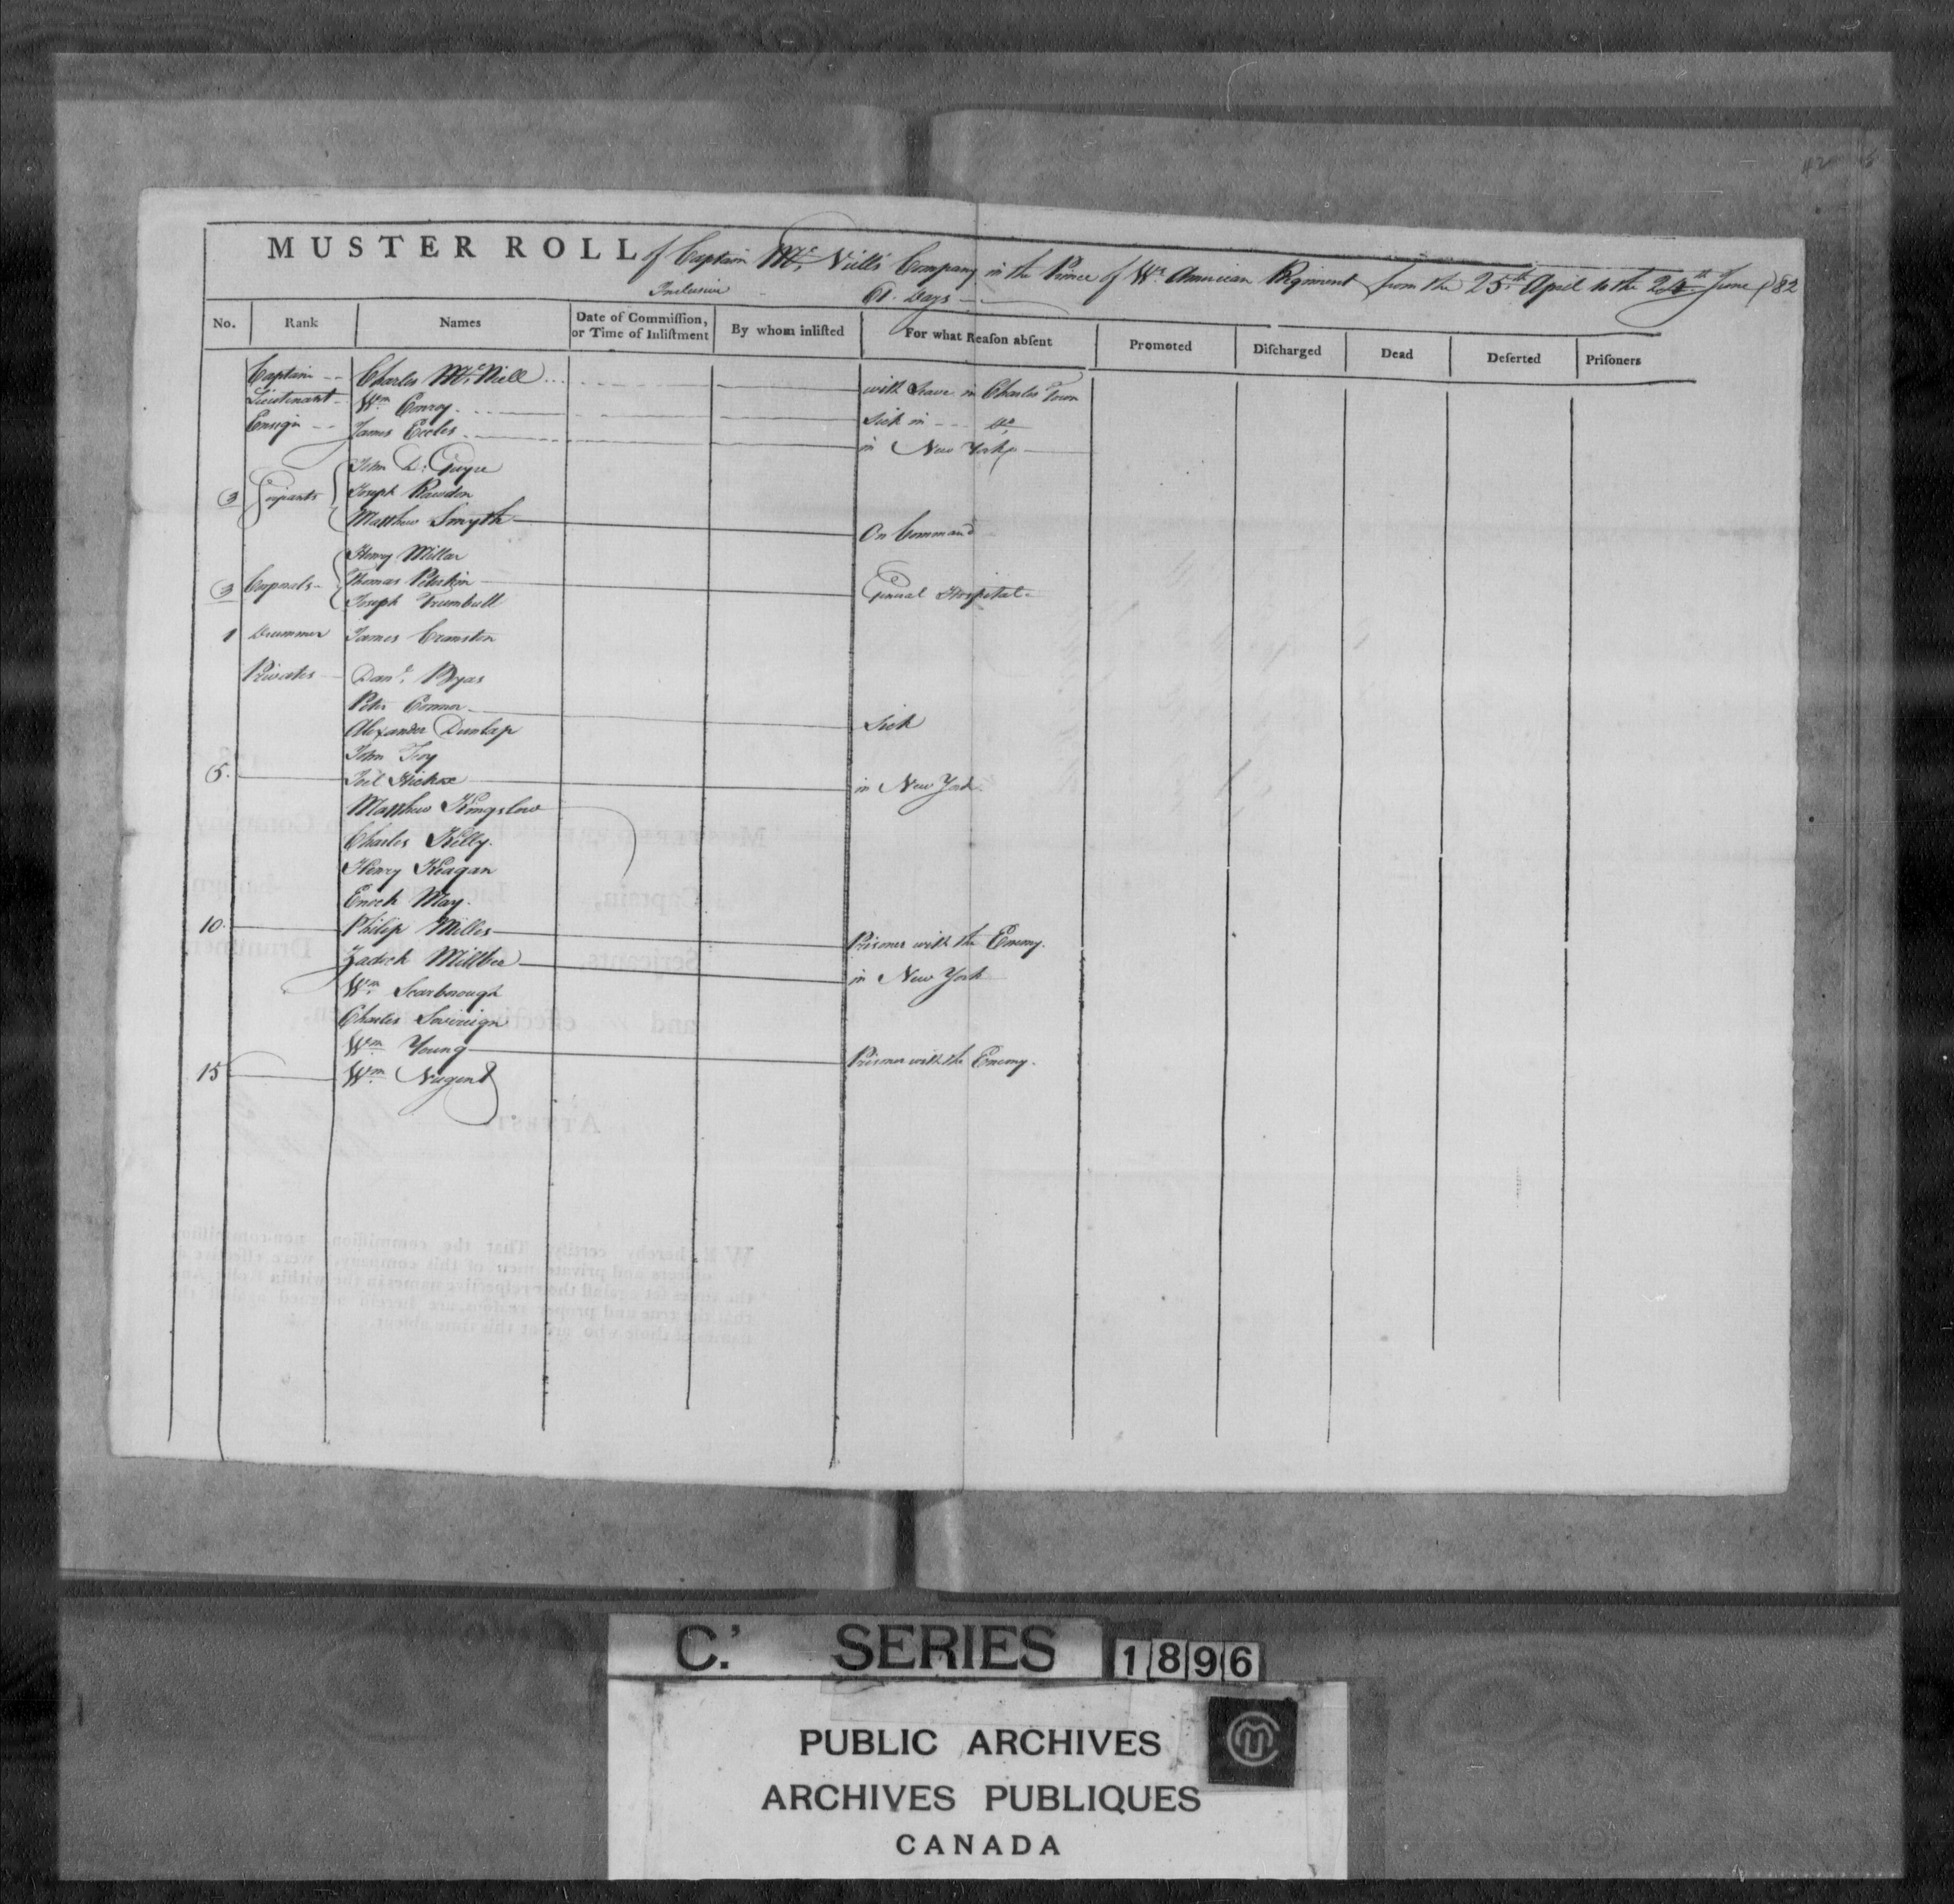 MUSTER ROLL of Captain Mc, Niell's Company in the Prince of Ws. American Regiment from the 25th April to the 24th June 1782
Inclusive 61 Days
No. Rank Names Date of Commiſſion, or Time of Inliſtment By whom inliſted For what Reaſon abſent Promoted Diſcharged Dead Deſerted Priſoners
Captain -- Charles Mc, Niell ... with Leave in Charles Town
Lieutenant - Wm Conroy. Sick in --- Do
Ensign -- James Eccles in New York
3 Serjeants John D: Guyre
Joseph Rawdon
Matthew Smyth On Command
3 Corporals - Henry Millar
Thomas Peterkin General Hospital
Joseph Trumbull
1 Drummer James Cranston
Privates Danl. Byas
Peter Connor Sick
Alexander Dunlap
John
5. Joel Hickox in New York.
Matthew Kingslow
Charles Kelly.
Henry Keagan
Enoch May.
10. Philip Milles Prisoner with the Enemy.
Zadock in New York
Wm Scarborough
Charles Sovireign
Wm Young Prisoner with the Enemy.
15 Wm Nugent
C.' SERIES 1896
PUBLIC ARCHIVES
ARCHIVES PUBLIQUES
CANADA